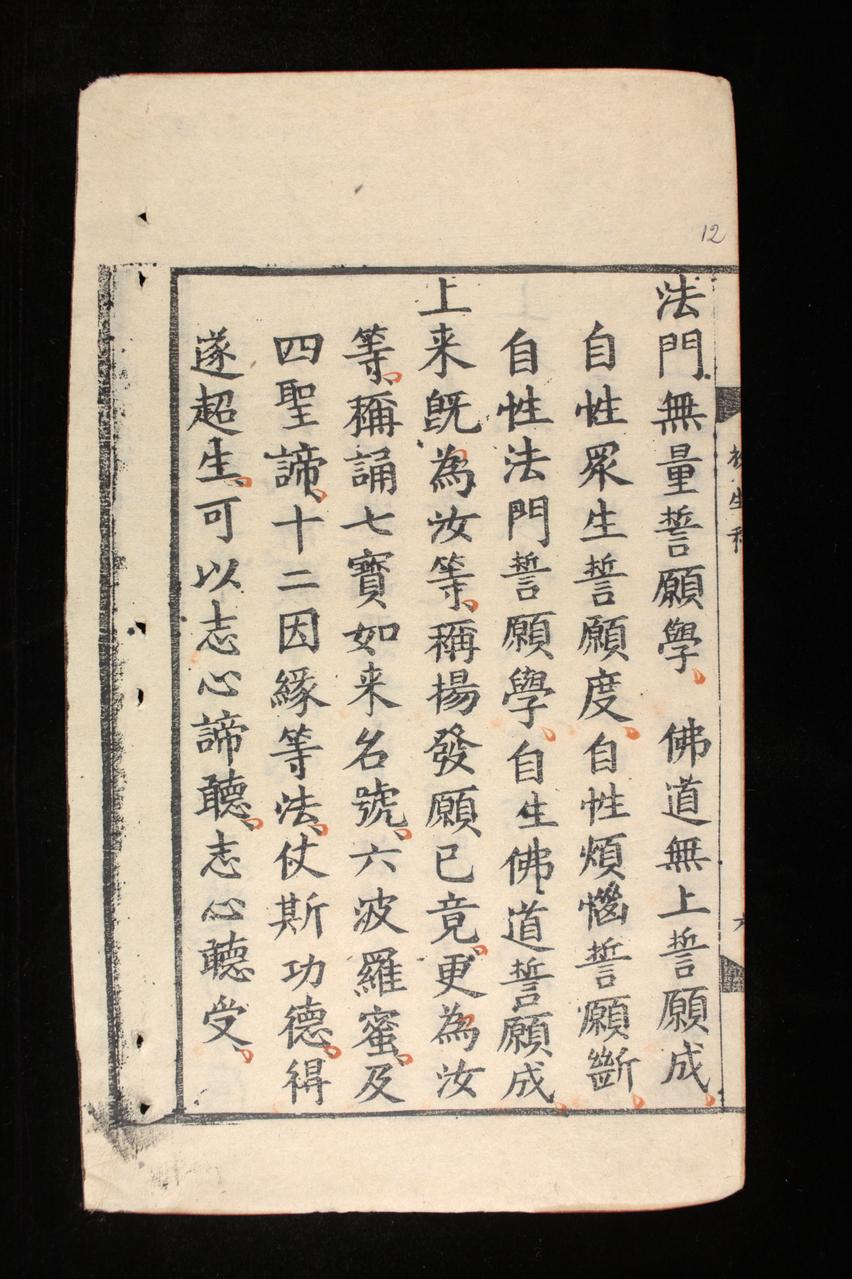 12
法門無量誓願學、佛道無上誓願成、
自性眾生誓願度、自性煩惱誓願斷、
自性法門誓願學、自生佛道誓願成、
上来既為汝等、稱揚發願已竟、更為汝
等、稱誦七寶如来名號、六波羅蜜、及
四聖諦、十二因緣等法、仗斯功德、得
遂超生、可以志心諦聽、志心聽受、